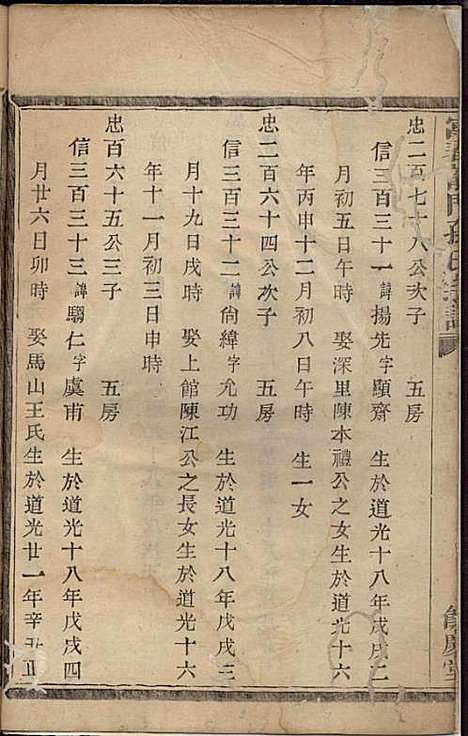 孫氏宗譜
餘慶堂
忠二百七十八公次子 五房
信三百三十一諱揚先字顯齋 生於道光十八年戊戌二
月初五日午時 娶深里陳本禮公之女生於道光十六
年丙申十二月初八日午時 生一女
忠二百六十四公次子 五房
信三百三十二諱尙緯字允功 生於道光十八年戊戌三
月十九日戌時 娶上館陳江公之長女生於道光十六
年十一月初三日申時
忠百六十五公三子 五房
信三百三十三諱騶仁字虞甫 生於道光十八年戊戌四
月廿六日卯時 娶馬山王氏生於道光廿一年辛丑正